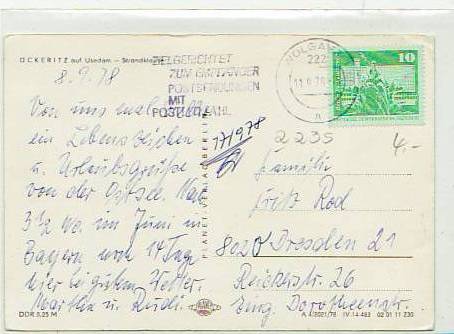 ÜCKERITZ auf Usedom — Strandkla
8.9.78
ZIELGERICHTET
ZUM EMPFÄNGER
POSTSENDUNGEN
MIT
POSTLEITZAHL
WOLGAST
222
11.9.78
10
Von uns mal
ein Lebenszeichen
u. Urlaubsgrüße
von der Ostsee. Nach
3 1/2 Wo. im Juni in
Bayern nun 14 Tage
hier bei gutem Wetter.
Martha u. Rudi.
PLANET-VERLAG BERLIN
17/9 78
2235
4,-
Familie
Fritz Rod
8020 Dresden 21
Reickerstr. 26
Eing. Dorotheenstr.
DDR 0,25 M
A 4/2021/78 IV-14-483 02 01 11 230